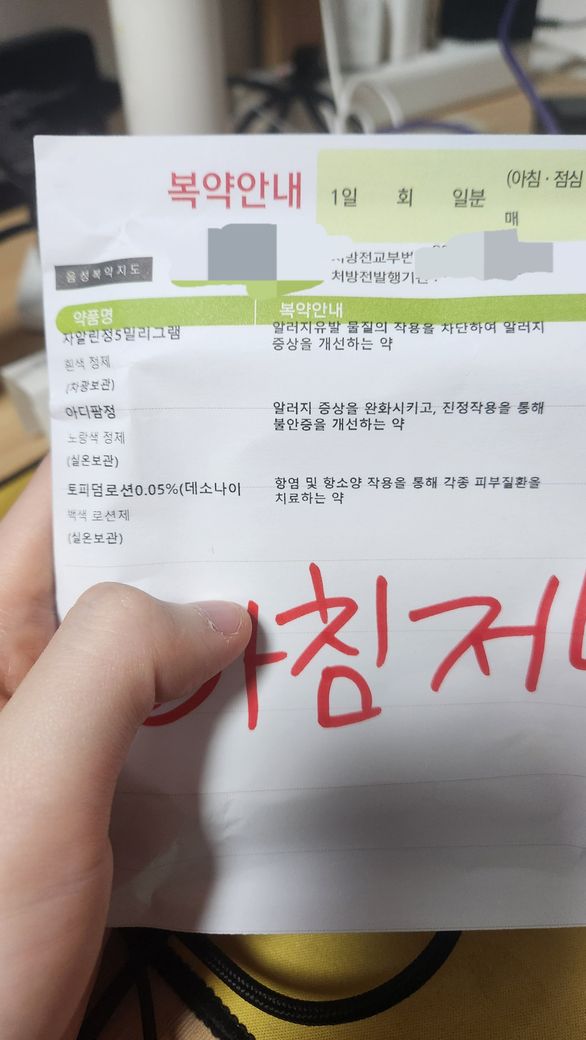 복약안내
1일 회 일분
(아침·점심
매
처방전교부번
처방전발행기관 :
음성복약지도
약품명 복약안내
자알린정5밀리그램
알러지유발 물질의 작용을 차단하여 알러지
증상을 개선하는 약
흰색 정제
(차광보관)
아디팜정
알러지 증상을 완화시키고, 진정작용을 통해
불안증을 개선하는 약
노랑색 정제
(실온보관)
토피덤로션0.05%(데소나이
항염 및 항소양 작용을 통해 각종 피부질환을
치료하는 약
백색 로션제
(실온보관)
아침 저녁